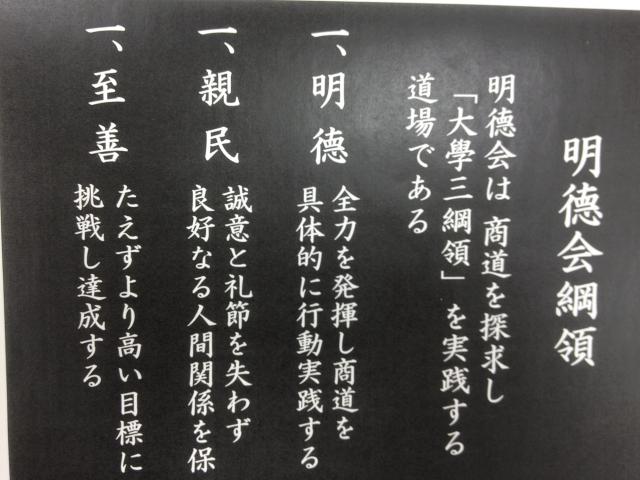 明德会綱領
明德会は 商道を探求し
「大學三綱領」を実践する
道場である
一、明德
全力を発揮し商道を
具体的に行動実践する
一、親民
誠意と礼節を失わず
良好なる人間関係を保
一、至善
たえずより高い目標に
挑戦し達成する